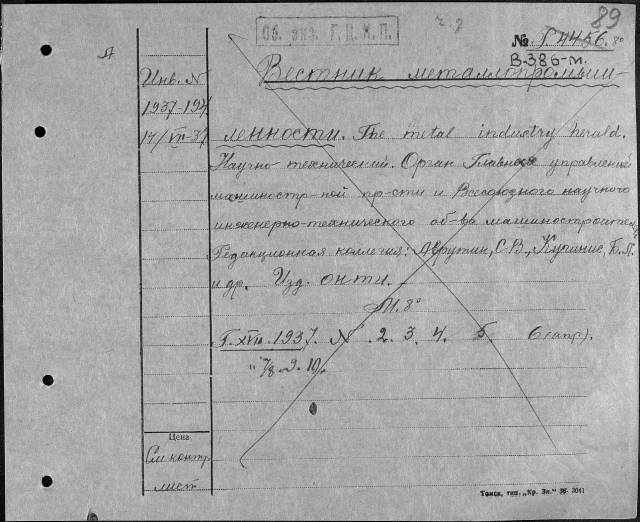 89
Об. виз. Г.Ц.М.П.
№ Г 4456. 8°
В-386-м.
Вестник металлопромыш-
ленности. The metal industry herald.
Научно-технический. Орган Главного управления
машиностр-ной пр-сти и Всесоюзного научного
инженерно-технического об-ва машиностроителей
Редакционная коллегия: С.В., Б.Л.
и др. Изд. ОНТИ.
М. 8°
Г. XVII. 1937. № 2. 3. 4. 5. 6 (апр).
" 7/8. 9. 10/.
Инв. №
1937-194
17/VII-37
Цена
См контр
лист
Томск, тип. „Кр. Зн." 36- 3041